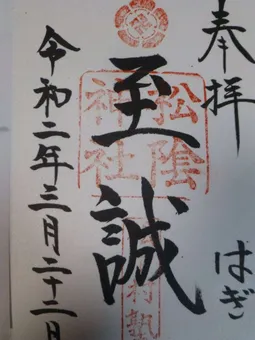 奉拝
はぎ
至誠
松陰
神社
村塾
令和二年三月二十二日